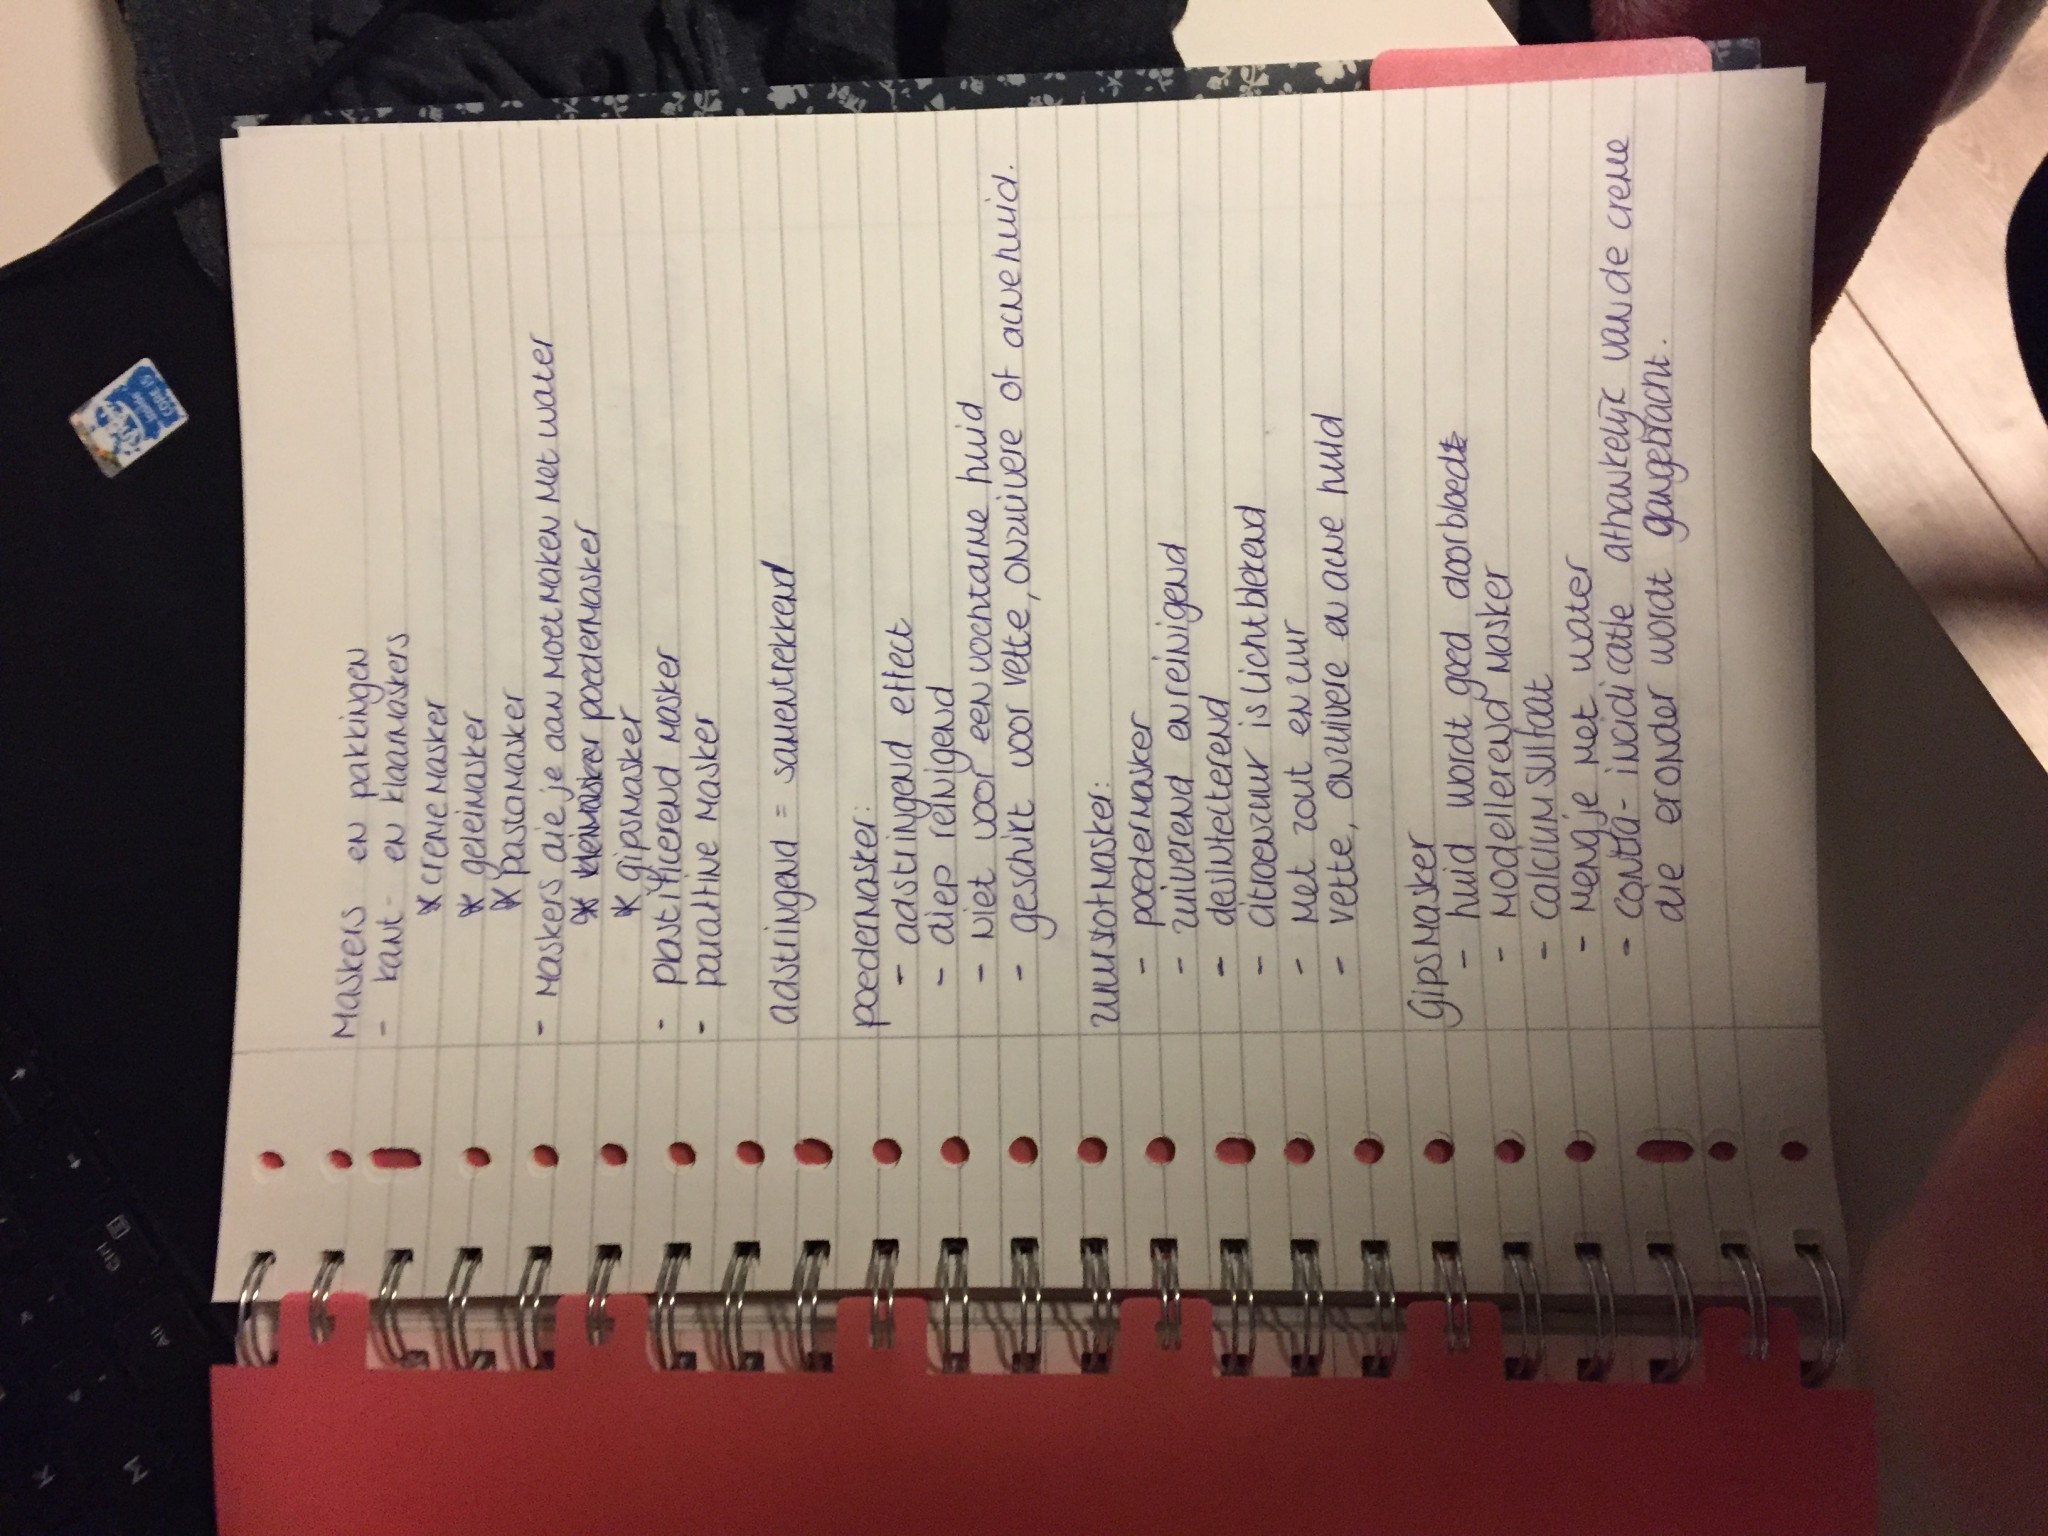 Maskers en pakkingen
- kant- en klaarmaskers
* crememasker
* geleimasker
* pastamasker
- Maskers die je aan moet maken met water
* poedermasker
* gipsmasker
- plastificerend masker
- parafine masker
adstringend = samentrekkend
poedermasker:
- adstringend effect
- diep reinigend
- niet voor een vochtarme huid
- geschikt voor vette, onzuivere of acnehuid.
zuurstofmasker:
- poedermasker
- zuiverend en reinigend
- desinfecterend
- citroenzuur is licht blekend
- Met zout en zuur
- vette, onzuivere en acne huid
Gipsmasker
- huid wordt goed doorbloed
- Modellerend masker
- calciumsulfaat
- Meng je met water
- contra-indicatie afhankelijk van de creme
die eronder wordt aangebracht.
CORE i5
inside
Alt
Ctrl
M
K